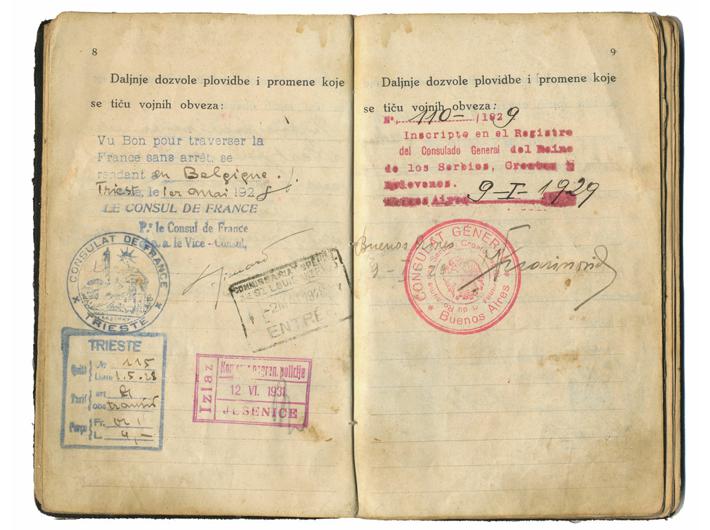 8
Daljnje dozvole plovidbe i promene koje
se tiču vojnih obveza:
Vu Bon pour traverser la
France sans arrêt, se
rendant en Belgique.
Trieste, le 1er mai 1928
LE CONSUL DE FRANCE
P. le Consul de France
le Vice-Consul,
CONSULAT DE FRANCE
TRIESTE
ENTRÉE
TRIESTE
Nr 115
1.5.28
Tarif
transit
Fr.
L
Izlaz
policije
12 VI. 193
JESENICE
9
Daljnje dozvole plovidbe i promene koje
se tiču vojnih obveza:
No. 110- /1929
Inscripto en el Registro
del Consulado General del Reino
de los Serbios, Croatas y
Buenos Aires 9-I-1929
Buenos Aires
CONSULAT GÉNÉRAL
Buenos Aires